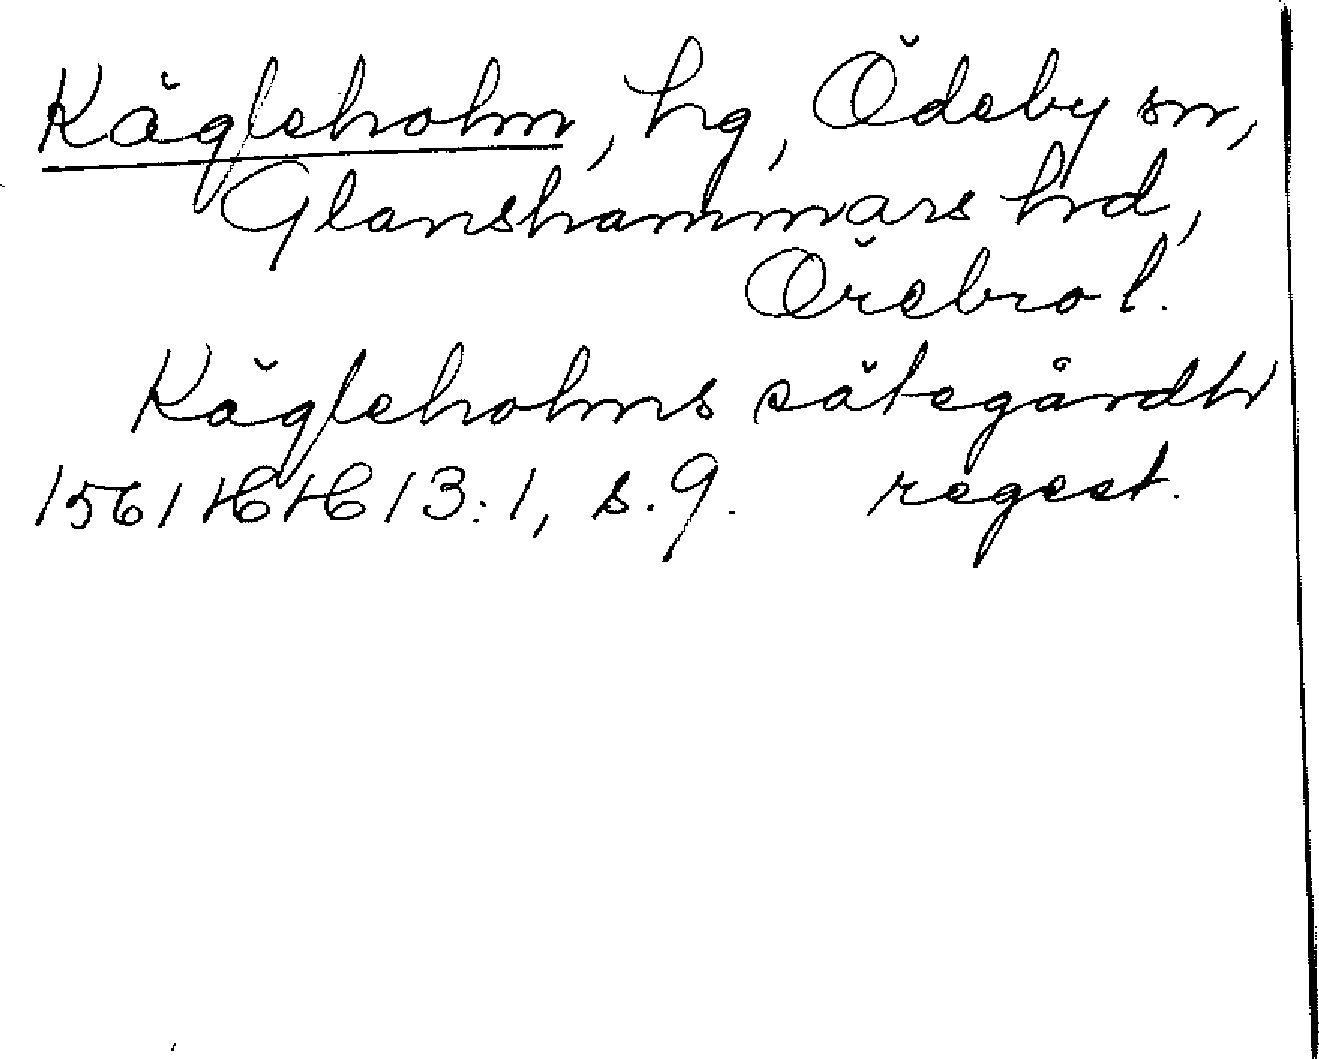 Kägleholm, hg, Ödeby sn,
Glanshammars hd,
Örebro l.
Kägleholms sätegårdh
1561 HH 13:1, s. 9. regest.